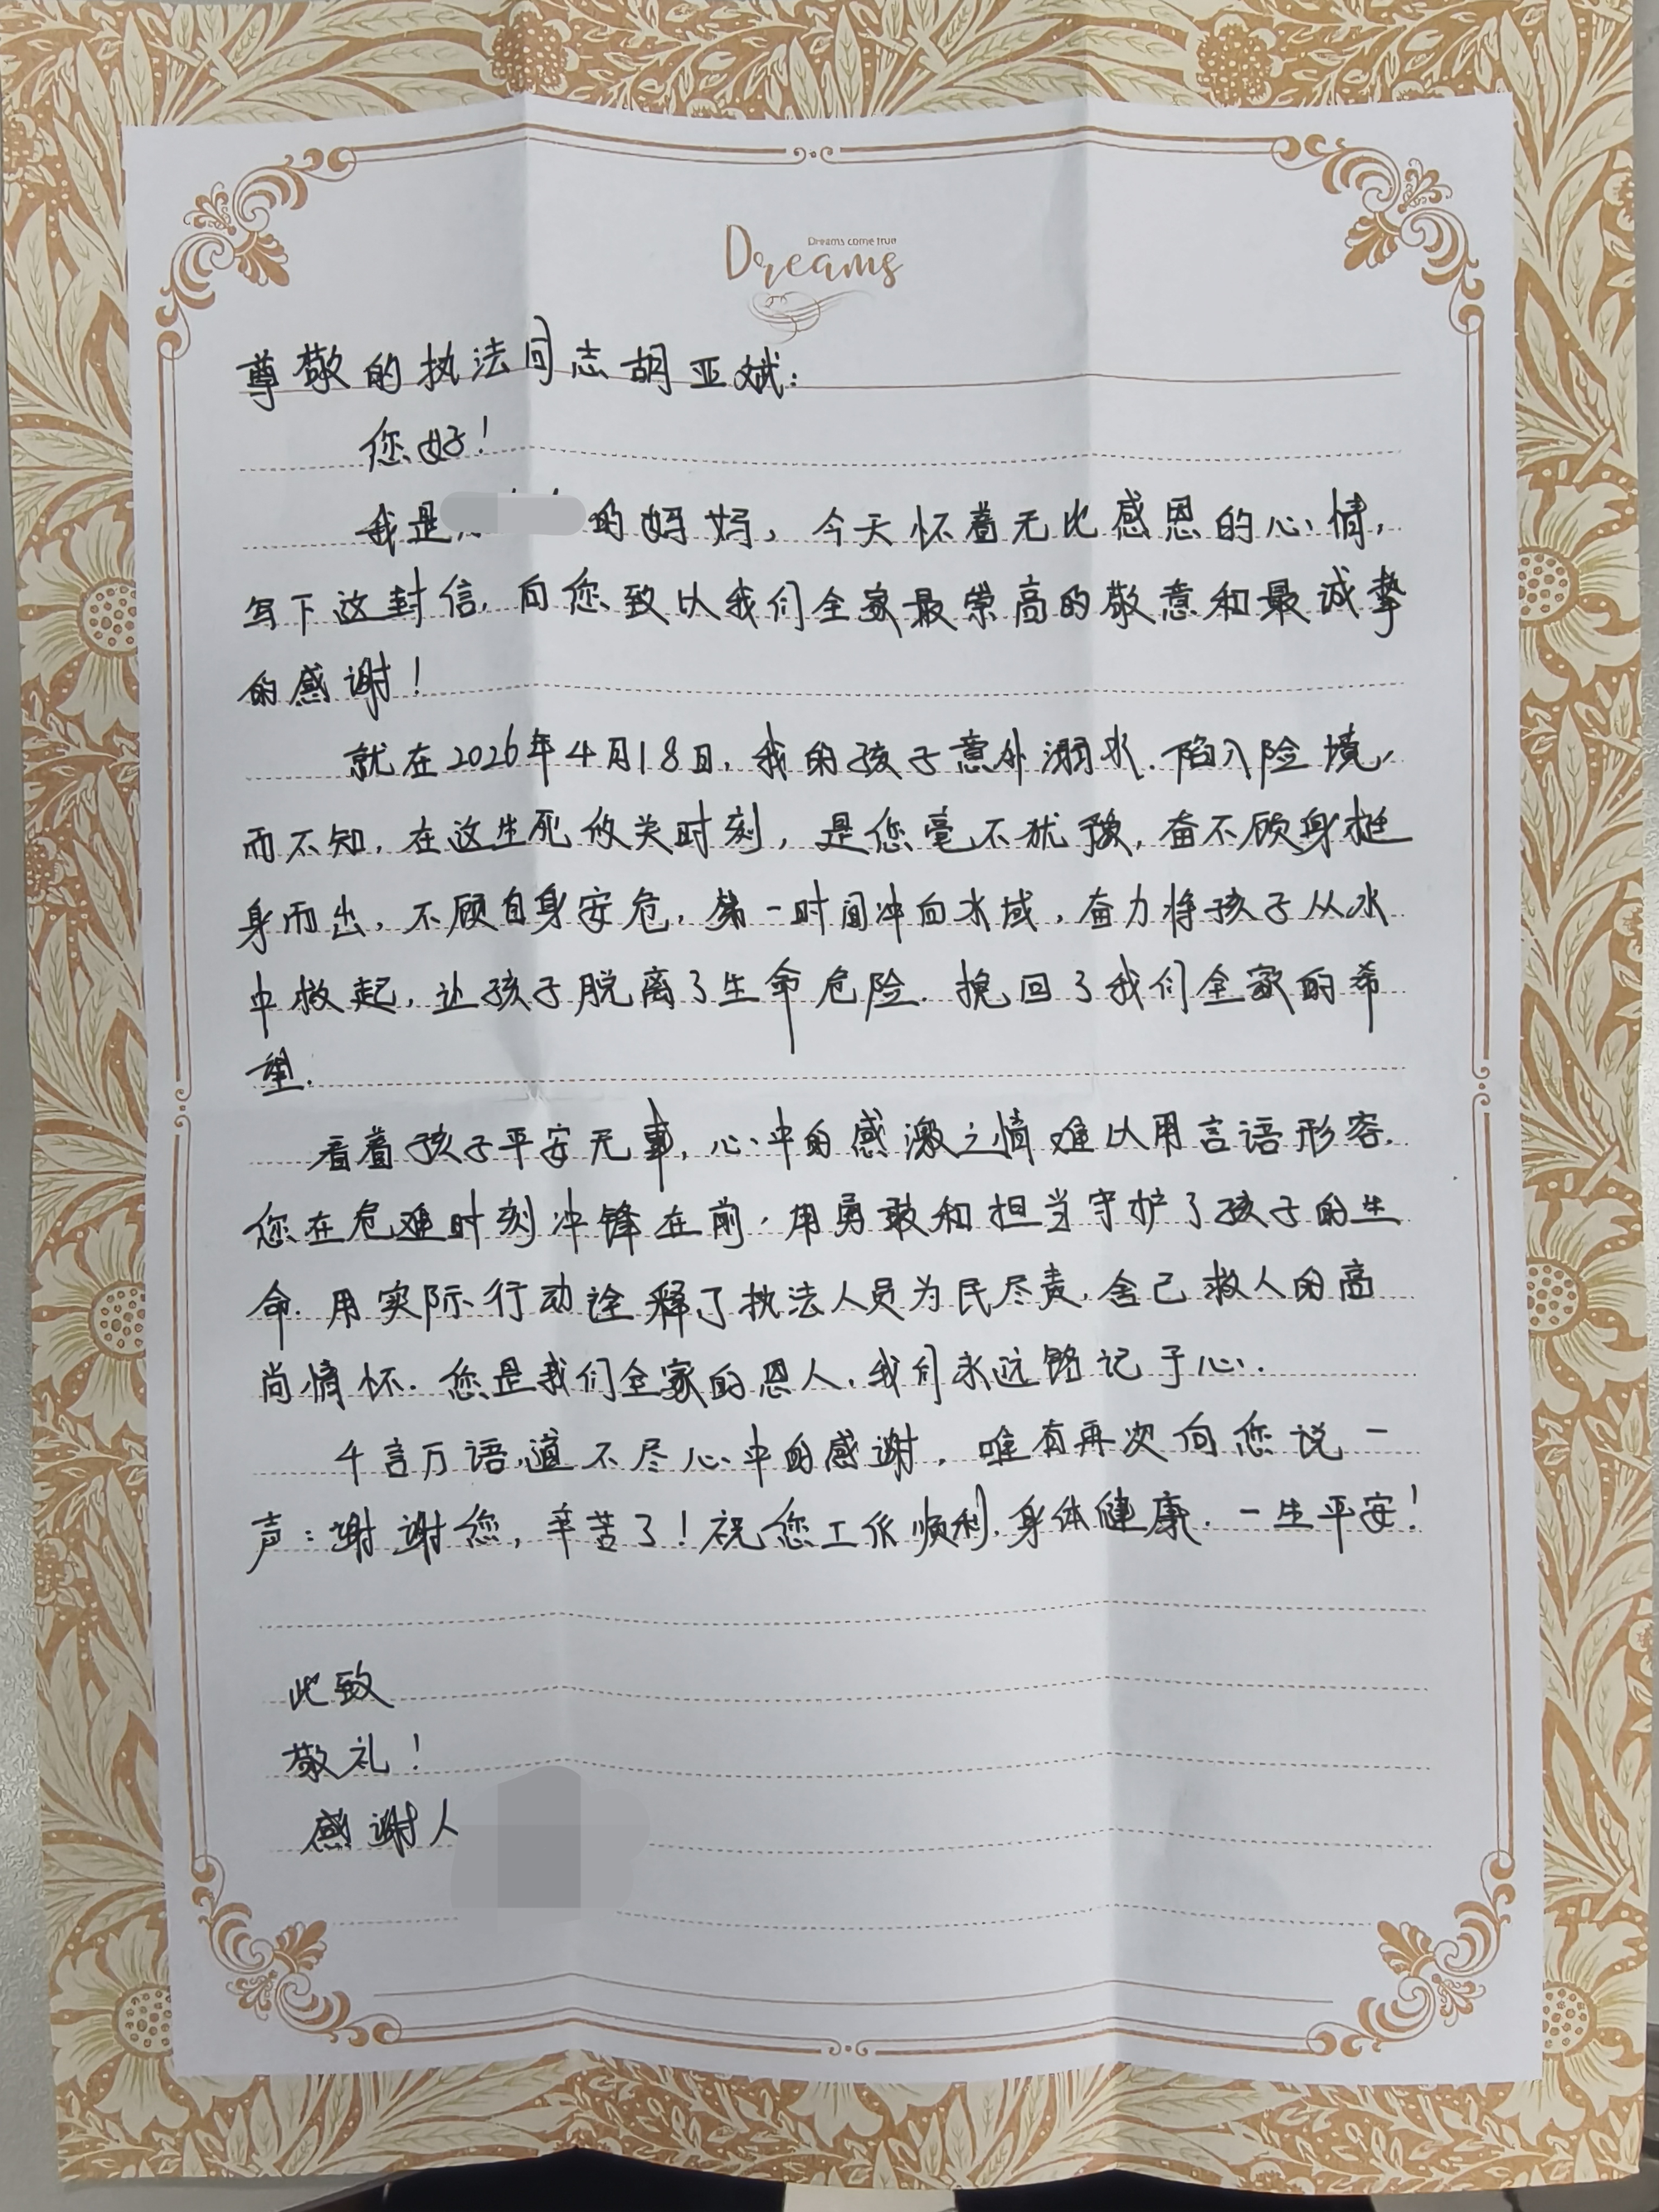 Dreams come true
Dreams
尊敬的执法同志胡亚斌:
您好!
我是 的妈妈,今天怀着无比感恩的心情,
写下这封信,向您致以我们全家最崇高的敬意和最诚挚
的感谢!
就在2026年4月18日,我的孩子意外溺水.陷入险境,
而不知,在这生死攸关时刻,是您毫不犹豫,奋不顾身挺
身而出,不顾自身安危,第一时间冲向水域,奋力将孩子从水
中救起,让孩子脱离了生命危险.挽回了我们全家的希
望.
看着孩子平安无事,心中的感激之情难以用言语形容.
您在危难时刻冲锋在前,用勇敢和担当守护了孩子的生
命.用实际行动诠释了执法人员为民尽责,舍己救人的高
尚情怀.您是我们全家的恩人,我们永远铭记于心.
千言万语,道不尽心中的感谢,唯有再次向您说一
声:谢谢您,辛苦了!祝您工作顺利,身体健康.一生平安!
此致
敬礼!
感谢人